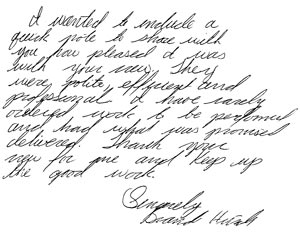 I wanted to include a
quick note to share with
you how pleased I was
with your men. They
were polite, efficient and
professional. I have rarely
ordered work to be performed
and had what was promised
delivered. Thank your
men for me and keep up
the good work.
Sincerely